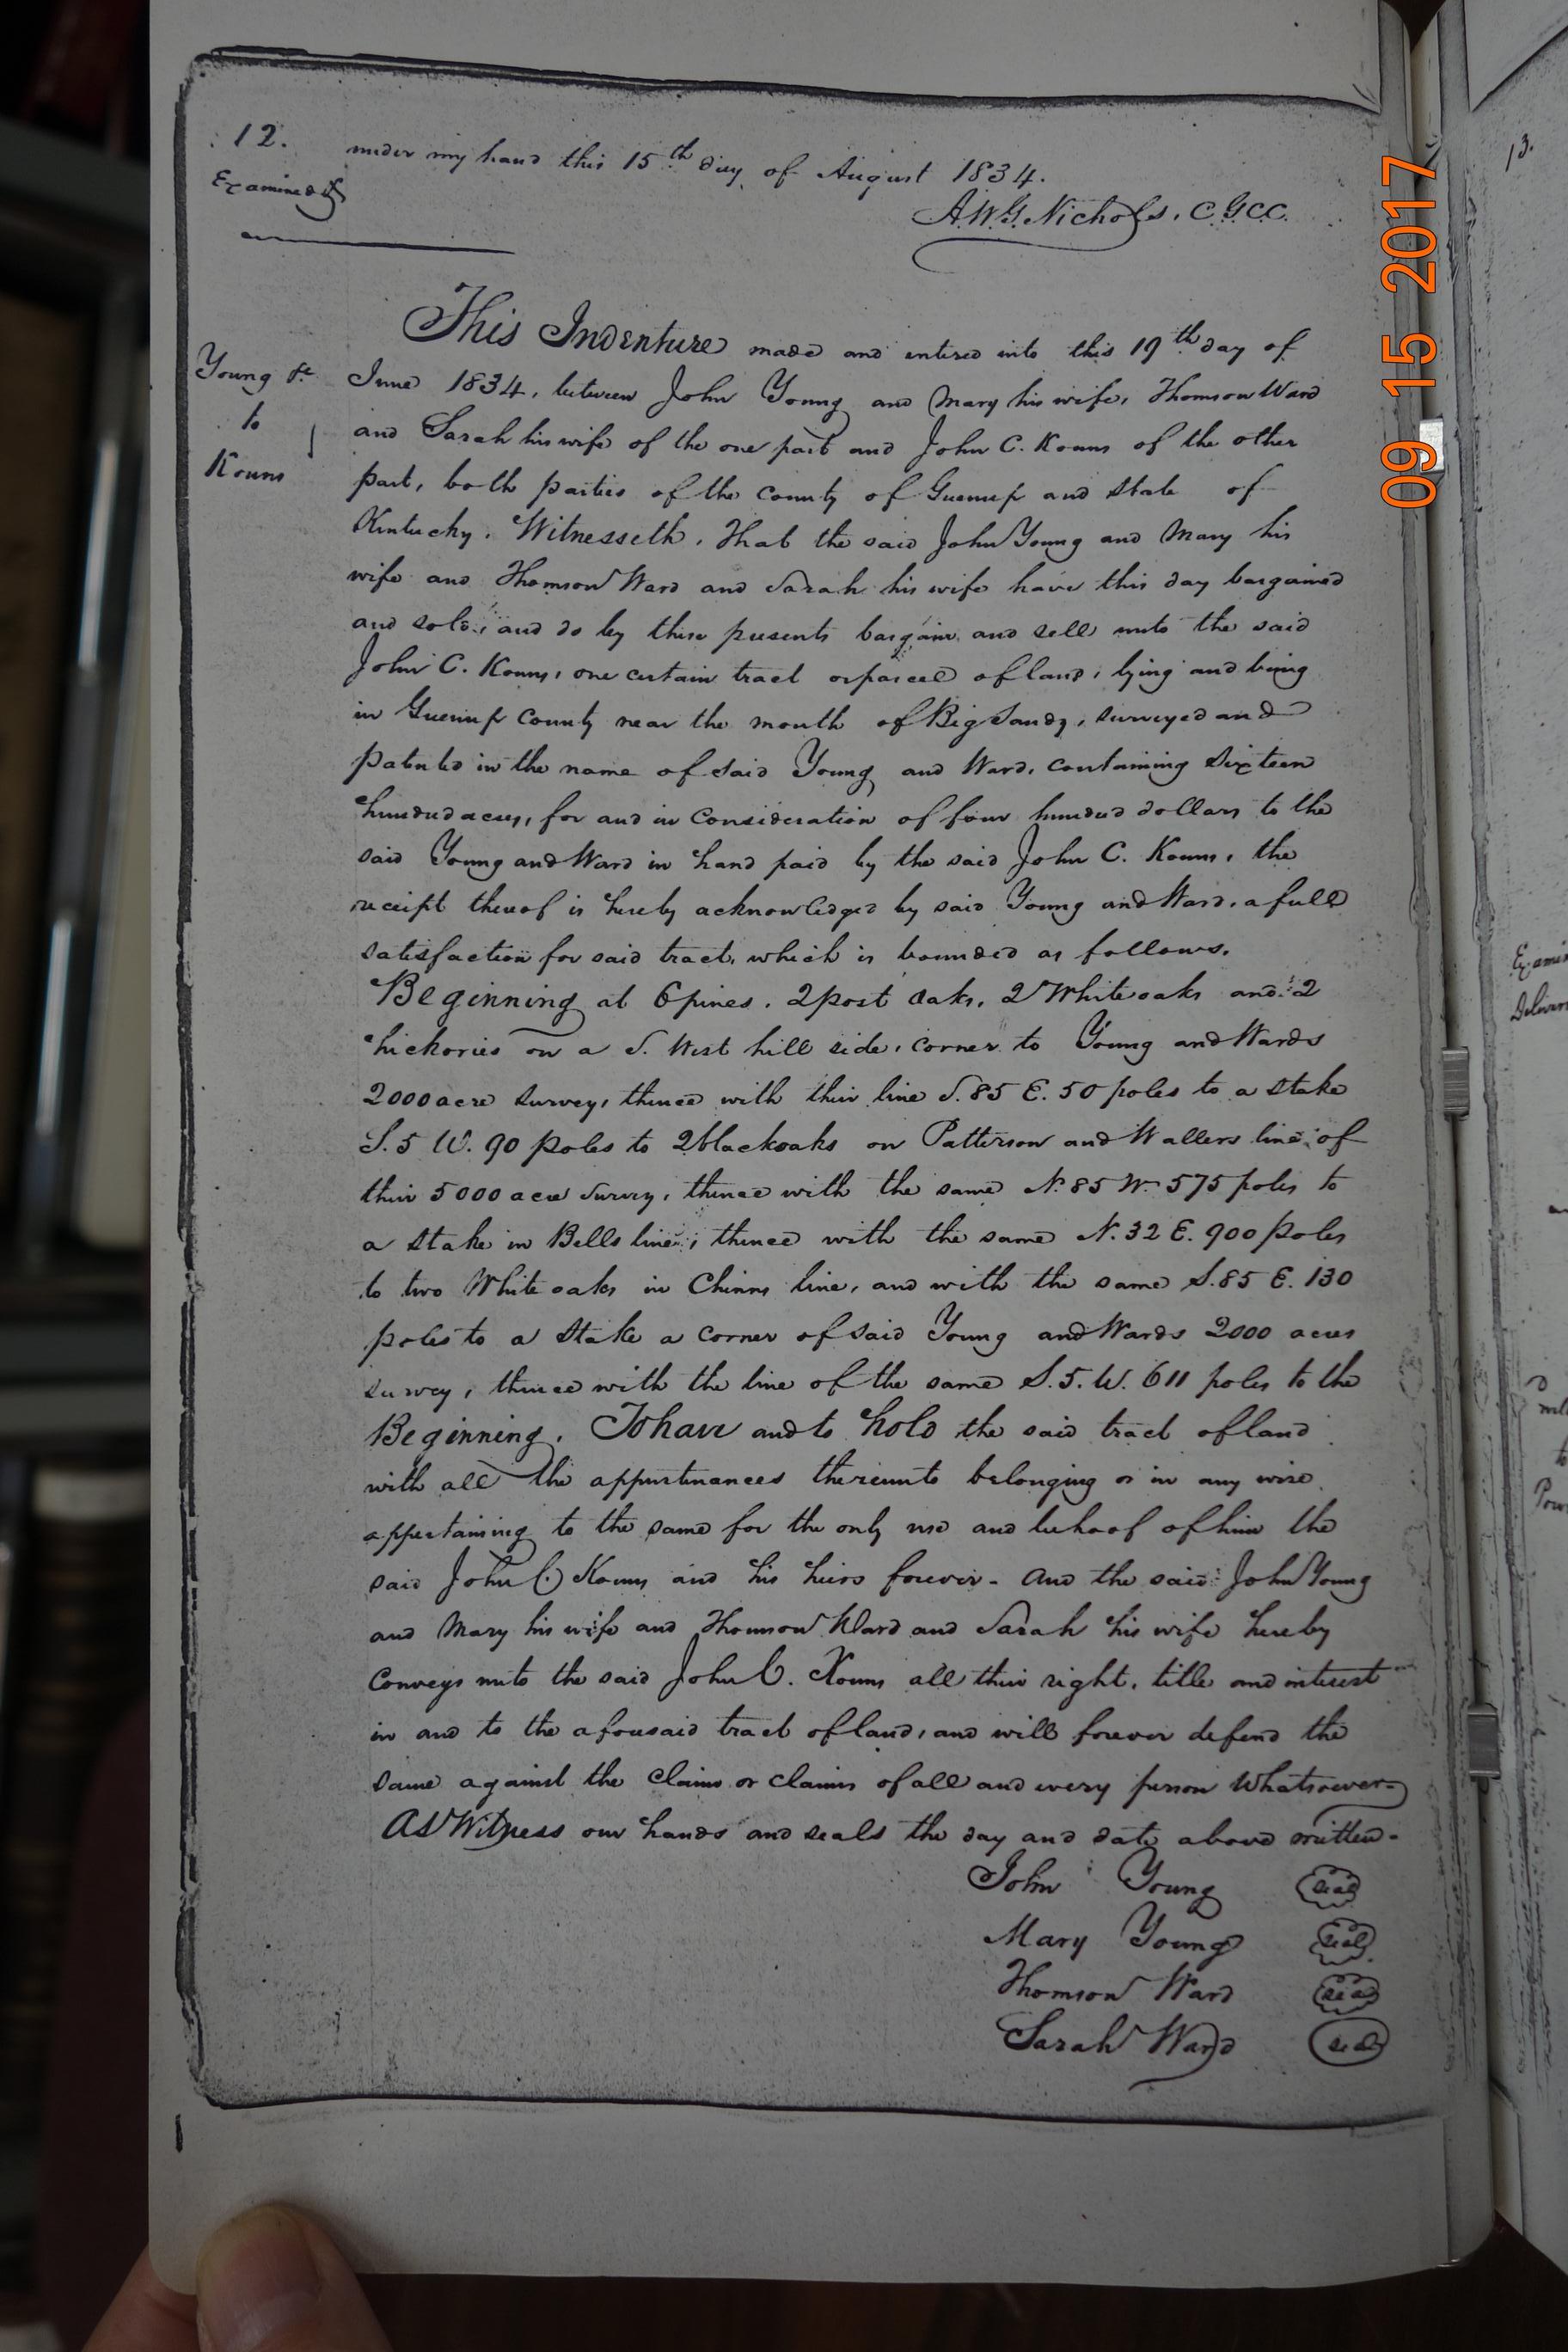 12.
under my hand this 15th day of August 1834.
Examined
A.W.G. Nichols, C.G.C.C.
This Indenture made and entered into this 19th day of
Young &c
to
Kouns
June 1834, between John Young and Mary his wife, Thomson Ward
and Sarah his wife of the one part and John C. Kouns of the other
part, both parties of the county of Greenup and State of
Kentucky. Witnesseth, That the said John Young and Mary his
wife and Thomson Ward and Sarah his wife have this day bargained
and sold, and do by these presents bargain and sell unto the said
John C. Kouns, one certain tract or parcel of land, lying and being
in Greenup County near the mouth of Big Sandy, surveyed and
patented in the name of said Young and Ward, containing Sixteen
hundred acres, for and in Consideration of four hundred dollars to the
said Young and Ward in hand paid by the said John C. Kouns, the
receipt thereof is hereby acknowledged by said Young and Ward, a full
satisfaction for said tract, which is bounded as follows.
Beginning at 6 pines, 2 post oaks, 2 White oaks and 2
hickories on a S. West hill side, corner to Young and Wards
2000 acre survey, thence with their line S. 85 E. 50 poles to a stake
S. 5 W. 90 poles to 2 black oaks on Patterson and Wallers line of
their 5000 acre Survey, thence with the same N. 85 W. 575 poles to
a Stake in Bells line, thence with the same N. 32 E. 900 poles
to two White oaks in Chinns line, and with the same S. 85 E. 130
poles to a Stake a corner of said Young and Wards 2000 acres
survey, thence with the line of the same S. 5. W. 611 poles to the
Beginning. To have and to hold the said tract of land
with all the appurtenances thereunto belonging or in any wise
appertaining to the same for the only use and behoof of him the
said John C. Kouns and his heirs forever - And the said John Young
and Mary his wife and Thomson Ward and Sarah his wife hereby
Conveys unto the said John C. Kouns all their right, title and interest
in and to the aforesaid tract of land, and will forever defend the
same against the claim or claims of all and every person whatsoever -
As Witness our hands and seals the day and date above written -
John Young seal
Mary Young seal
Thomson Ward seal
Sarah Ward seal
09 15 2017
13.